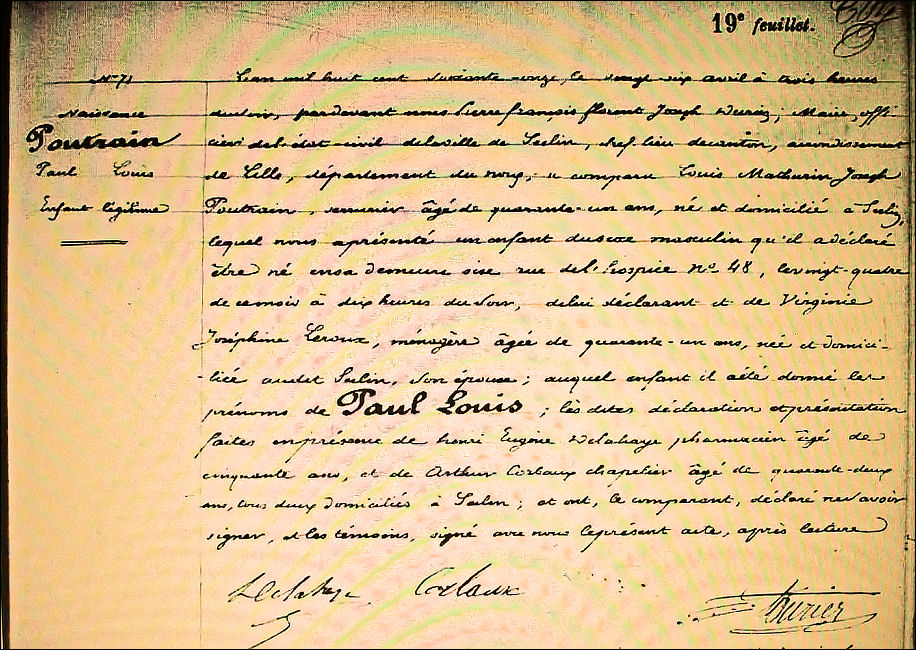 19e feuillet.
N° 71
L'an mil huit cent soixante-onze, le vingt-six avril à trois heures
Naissance
du soir, pardevant nous Pierre françois florent Joseph Duriez, Maire, offi-
Poutrain
cier de l'état-civil de la ville de Seclin, chef-lieu de canton, arrondissement
Paul Louis
de Lille, département du nord, a comparu Louis Mathurin Joseph
Enfant légitime
Poutrain, serrurier âgé de quarante-un ans, né et domicilié à Seclin,
lequel nous a présenté un enfant du sexe masculin qu'il a déclaré
être né en sa demeure sise rue de l'hospice n° 48, le vingt-quatre
de ce mois à dix heures du soir, de lui déclarant et de Virginie
Joséphine Leroux, ménagère âgée de quarante-un ans, née et domici-
liée audit Seclin, son épouse; auquel enfant il a été donné les
prénoms de Paul Louis; les dites déclaration et présentation
faites en présence de henri Eugène Delahaye pharmacien âgé de
cinquante ans, et de Arthur Corbaux chapelier âgé de quarante-deux
ans, tous deux domiciliés à Seclin; et ont, le comparant, déclaré ne savoir
signer, et les témoins, signé avec nous le présent acte, après lecture
Delahaye Corbaux
Duriez